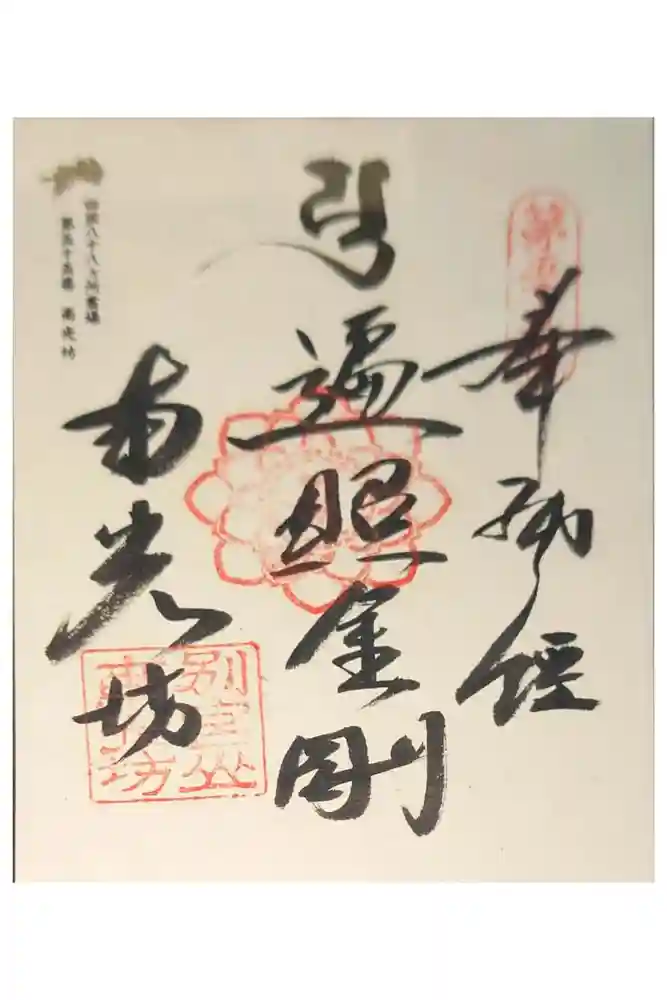 奉納經
遍照金剛
南光坊
四国八十八ヶ所霊場
第五十五番 南光坊
第五
別宮山
南光坊